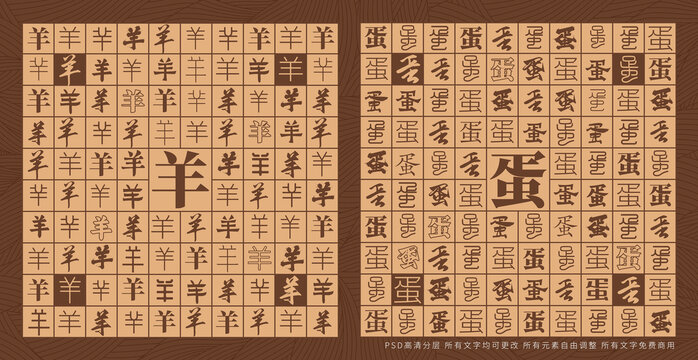 羊羊羊羊羊羊羊羊羊羊
羊羊羊羊羊羊羊羊羊羊
羊羊羊羊羊羊羊羊羊羊
羊羊羊羊羊羊羊羊羊羊
羊羊羊羊羊羊羊羊羊
羊羊羊羊羊羊羊羊
羊羊羊羊羊羊羊羊羊羊
羊羊羊羊羊羊羊羊羊羊
羊羊羊羊羊羊羊羊羊羊
羊羊羊羊羊羊羊羊羊羊
蛋蛋蛋蛋蛋蛋蛋蛋蛋蛋
蛋蛋蛋蛋蛋蛋蛋蛋蛋蛋
蛋蛋蛋蛋蛋蛋蛋蛋蛋蛋
蛋蛋蛋蛋蛋蛋蛋蛋蛋蛋
蛋蛋蛋蛋蛋蛋蛋蛋蛋
蛋蛋蛋蛋蛋蛋蛋蛋
蛋蛋蛋蛋蛋蛋蛋蛋蛋蛋
蛋蛋蛋蛋蛋蛋蛋蛋蛋蛋
蛋蛋蛋蛋蛋蛋蛋蛋蛋蛋
蛋蛋蛋蛋蛋蛋蛋蛋蛋蛋
PSD高清分层 所有文字均可更改 所有元素自由调整 所有文字免费商用